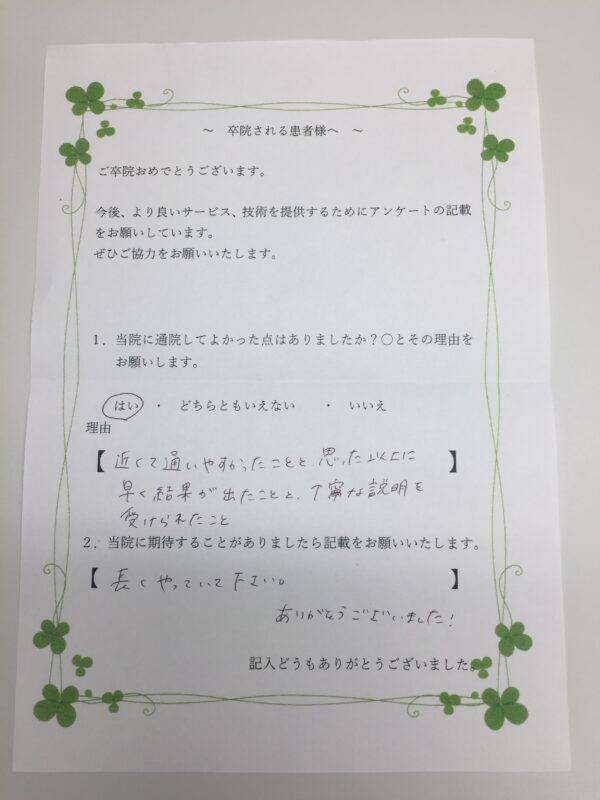 ～ 卒院される患者様へ ～
ご卒院おめでとうございます。
今後、より良いサービス、技術を提供するためにアンケートの記載
をお願いしています。
ぜひご協力をお願いいたします。
１．当院に通院してよかった点はありましたか？○とその理由を
お願いします。
はい ・ どちらともいえない ・ いいえ
理由
【 近くて通いやすかったことと、思った以上に 】
早く結果が出たことと、丁寧な説明を
受けられたこと
２．当院に期待することがありましたら記載をお願いいたします。
【 長くやっていて下さい。 】
ありがとうございました!
記入どうもありがとうございました。